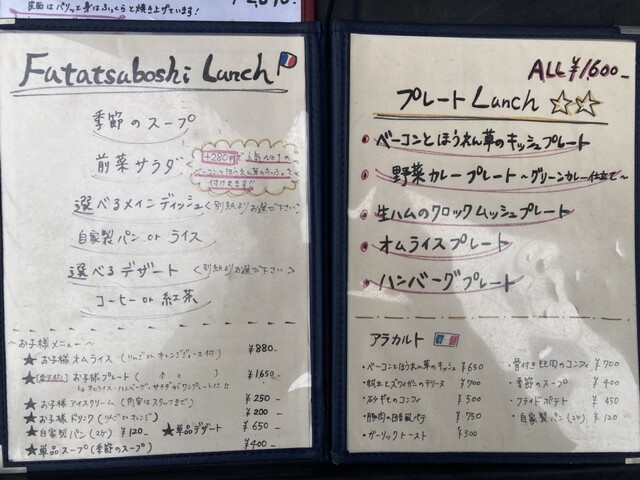 皮面はパリッと身はふっくらと焼き上げています!
Futatsuboshi Lunch
季節のスープ
前菜サラダ
+280円で人気No.1の
ベーコンとほうれん草のキッシュを
付けれます!!
選べるメインディッシュ<別紙よりお選び下さい>
自家製パン or ライス
選べるデザート<別紙よりお選び下さい>
コーヒー or 紅茶
~お子様メニュー~
★お子様オムライス(りんご or オレンジジュース付) ¥880-
お子様プレート( 〃 ) ¥1650-
オムライス・ハンバーグ・サラダがワンプレートに!!
★お子様アイスクリーム(内容はスタッフまで) ¥250-
★お子様ドリンク(りんご or オレンジ) ¥200-
★自家製パン(2ヶ) ¥120- ★単品デザート ¥650-
★単品スープ(季節のスープ) ¥400-
ALL¥1,600-
プレート Lunch ☆☆
ベーコンとほうれん草のキッシュプレート
野菜カレープレート~グリーンカレー仕立て~
生ハムのクロックムッシュプレート
オムライスプレート
ハンバーグプレート
アラカルト
・ベーコンとほうれん草のキッシュ ¥650
・帆立とズワイガニのテリーヌ ¥700
・砂ギモのコンフィ ¥500
・豚肉の田舎風パテ ¥750
・ガーリックトースト ¥500
・骨付きモモ肉のコンフィ ¥700
・季節のスープ ¥400
・フライドポテト ¥450
・自家製パン(2ヶ) ¥120